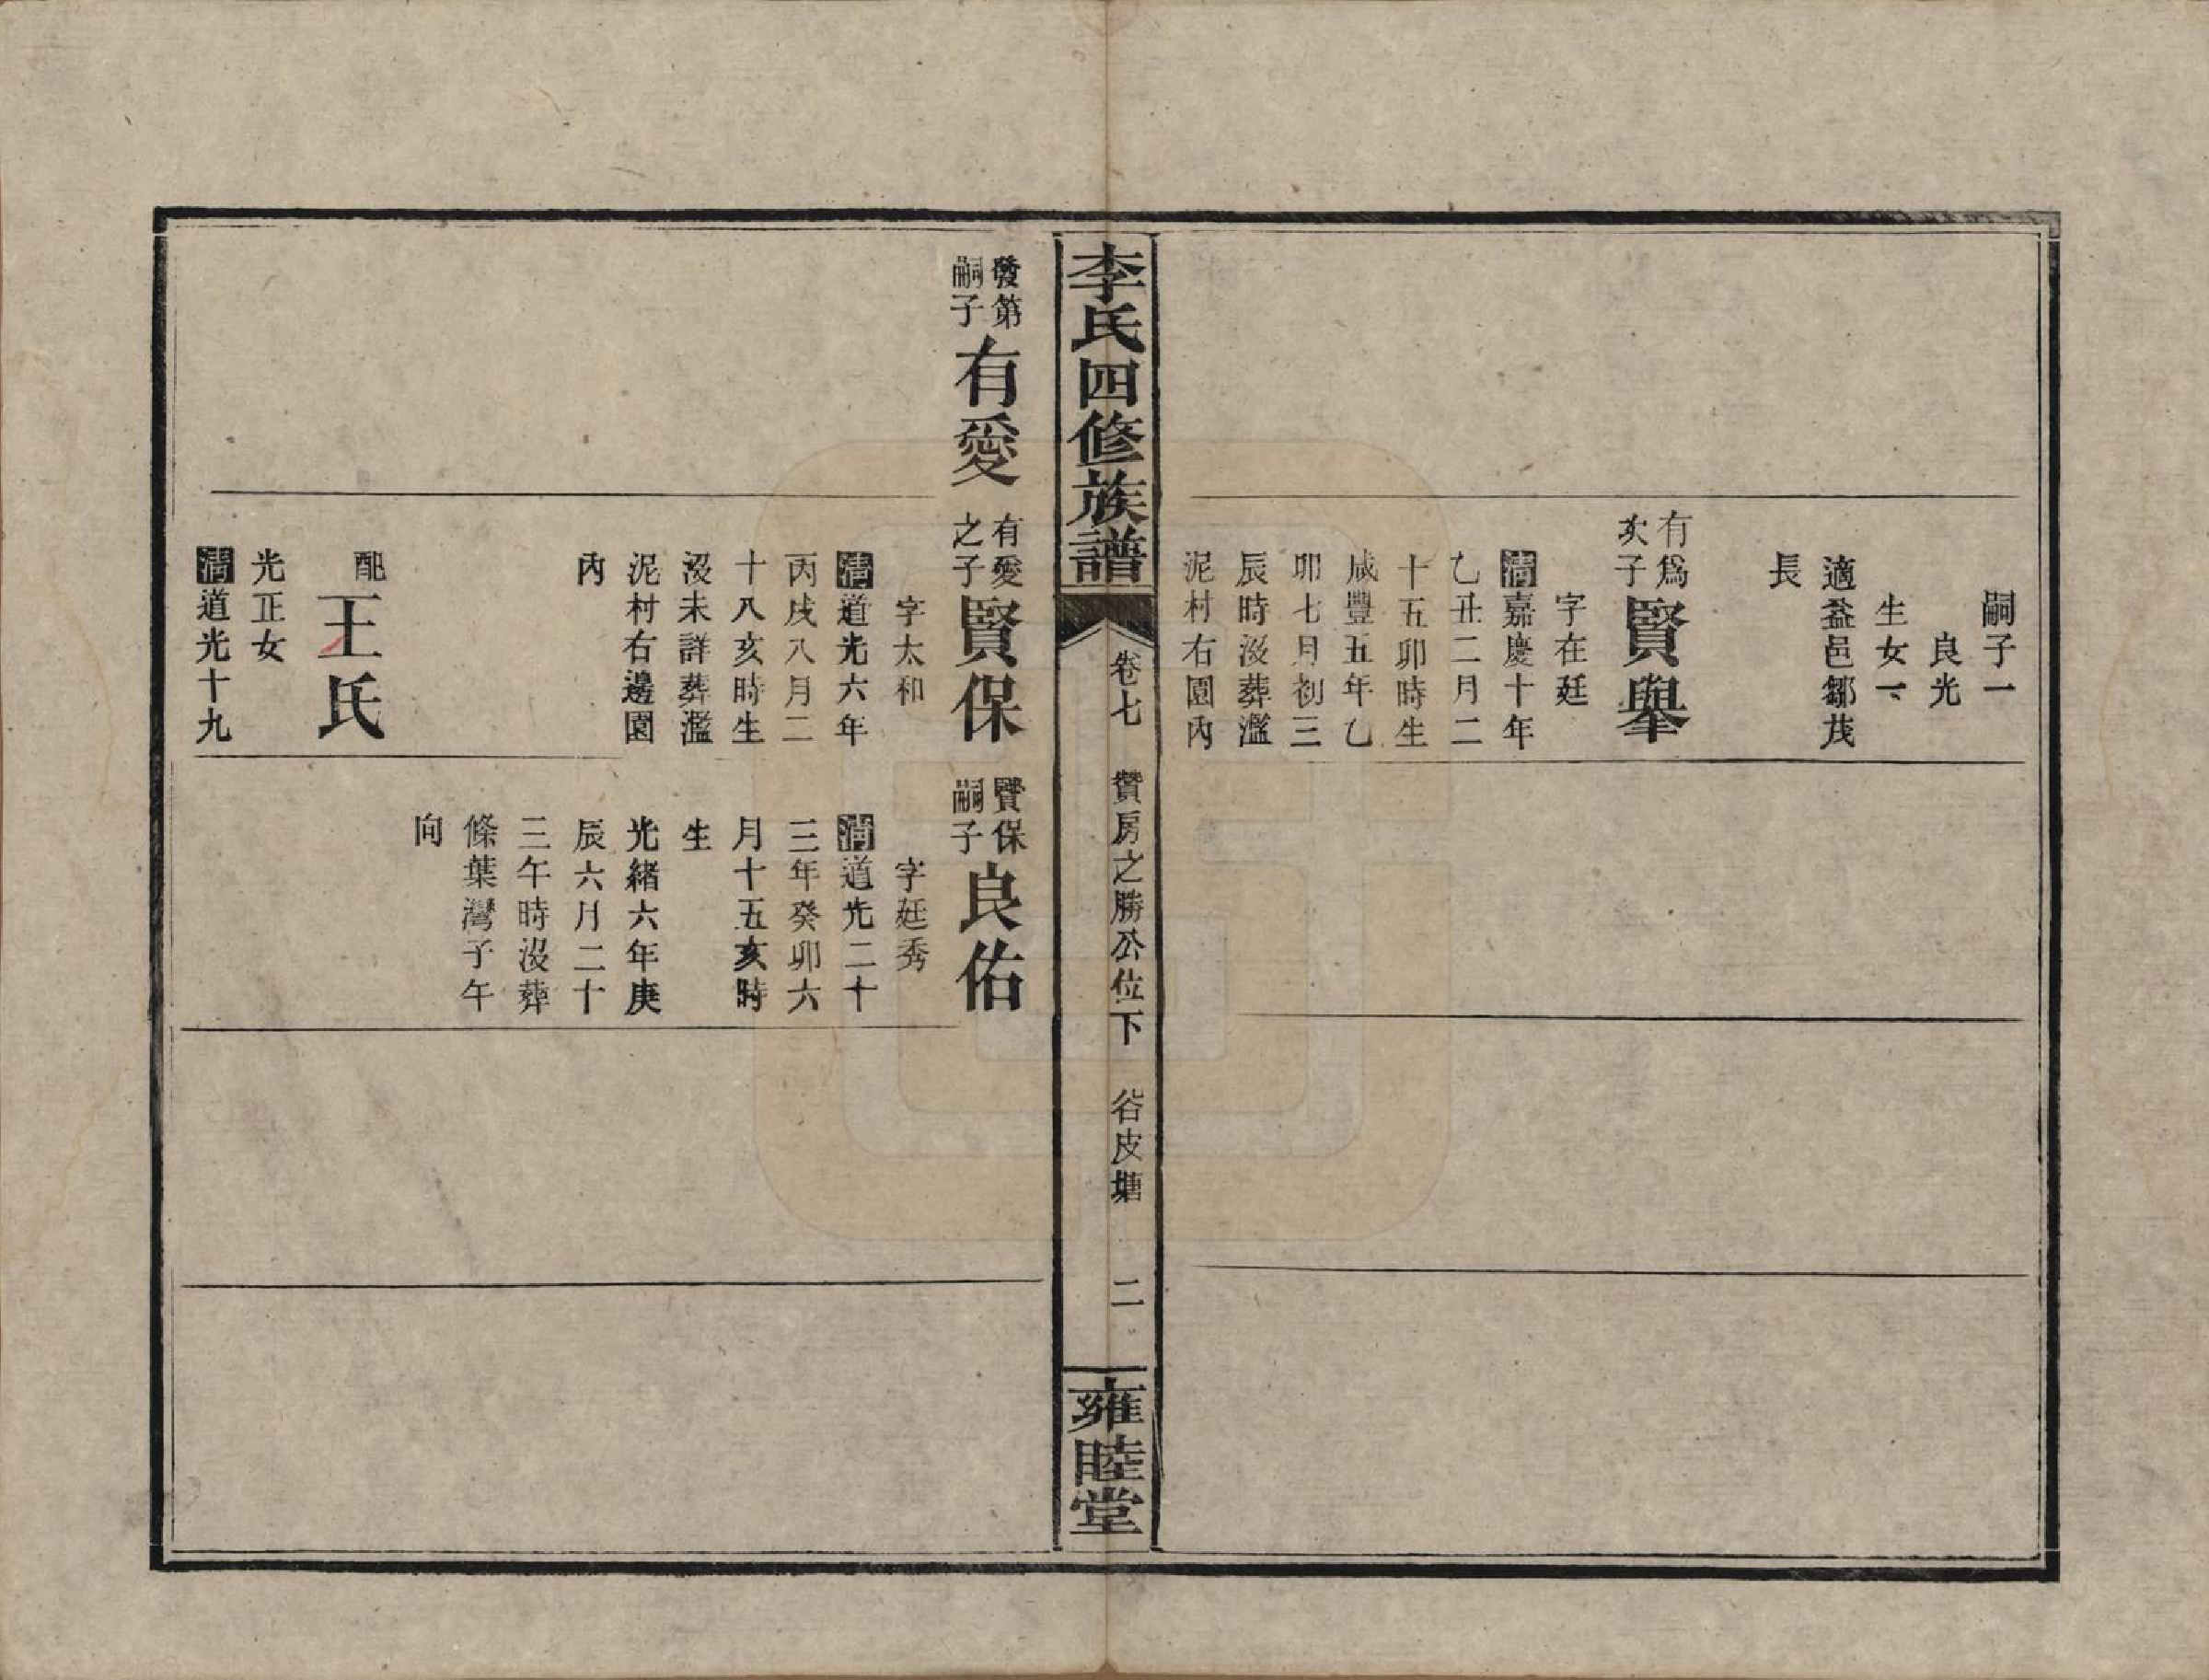 嗣子一
良光
生女一
適益邑鄒茂
長
有爲
次子
賢舉
字在廷
清嘉慶十年
乙丑二月二
十五卯時生
咸豐五年乙
卯七月初三
辰時沒葬灆
泥村右園內
李氏四修族譜
卷七 贊房之勝公位下 谷皮塘 二
雍睦堂
發第
嗣子
有愛
有愛
之子
賢保
字太和
清道光六年
丙戌八月二
十八亥時生
沒未詳葬灆
泥村右邊園
內
配
王氏
光正女
清道光十九
賢保
嗣子
良佑
字廷秀
清道光二十
三年癸卯六
月十五亥時
生
光緒六年庚
辰六月二十
三午時沒葬
條葉灣子午
向